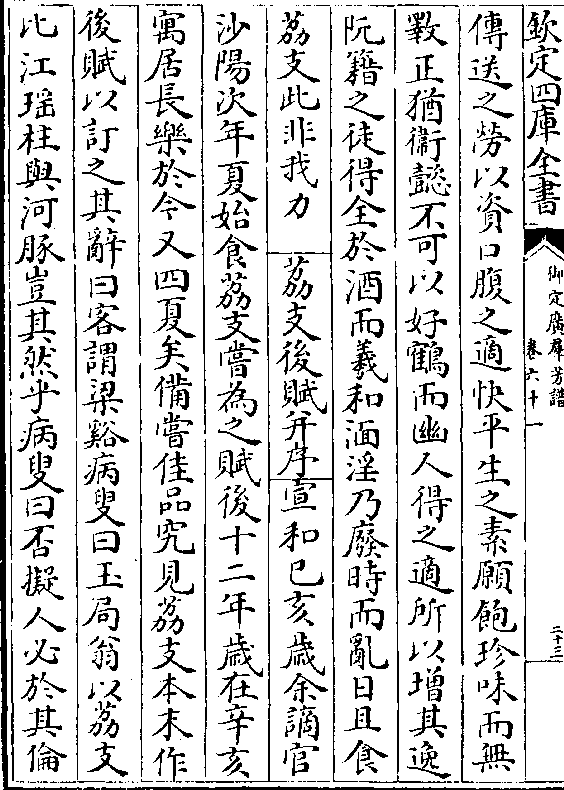 欽定四庫全書
御定廣羣芳譜
卷六十一
二十三
傳送之勞以資口腹之適快平生之素願飽珍味而無
斁正猶衛懿不可以好鶴而幽人得之適所以增其逸
阮籍之徒得全於酒而羲和湎淫乃廢時而亂日且食
荔支此非我力　荔支後賦并序宣和己亥歲余謫官
沙陽次年夏始食荔支嘗為之賦後十二年歲在辛亥
寓居長樂於今又四夏矣備嘗佳品究見荔支本末作
後賦以訂之其辭曰客謂梁谿病叟曰玉局翁以荔支
比江瑶柱與河豚豈其然乎病叟曰否擬人必於其倫